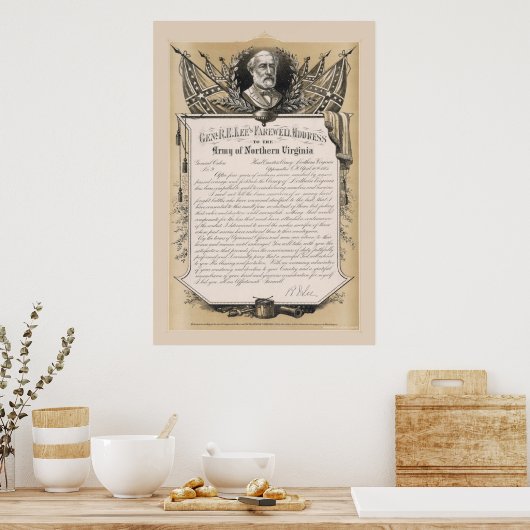 GENL. R.E. LEE'S FAREWELL ADDRESS
TO THE
Army of Northern Virginia
General Orders Head Quarters Army Northern Virginia
No. 9 Appomattox C.H. April 10th 1865
After four years of arduous service marked by
courage and fortitude the Army of Northern Virginia
has been compelled to yield to overwhelming numbers and resources
I need not tell the
who have remained steadfast to the last that I have
consented to this result from no distrust of them but feeling
that valor and devotion could accomplish nothing that would
compensate for the loss that must have attended a continuance
of the contest I determined to avoid the useless sacrifice of those
whose past services have endeared them to their countrymen
By the terms of Agreement Officers and men can return to their
homes and remain until exchanged You will take with you the
satisfaction that proceeds from the consciousness of duty faithfully
performed and I earnestly pray that a merciful God will extend
to you His blessing and protection With an
admiration of your constancy and devotion to your Country and a grateful
remembrance of your kind and generous consideration for myself
I bid you all an Affectionate Farewell
R E Lee